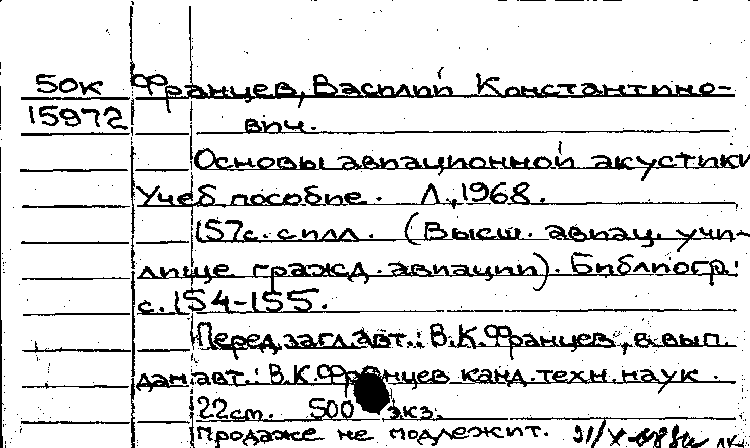 50к Францев, Василий Константино-
15972 вич.
Основы авиационной акустики
Учеб пособие. Л., 1968.
157с. с илл. (Высш. авиац. учи-
лище гражд. авиации). Библиогр:
с. 154-155.
Перед загл. авт.: В.К. Францев, в вып.
дан авт.: В.К. Францев канд. техн. наук.
22см. 500 экз.
продаже не подлежит.